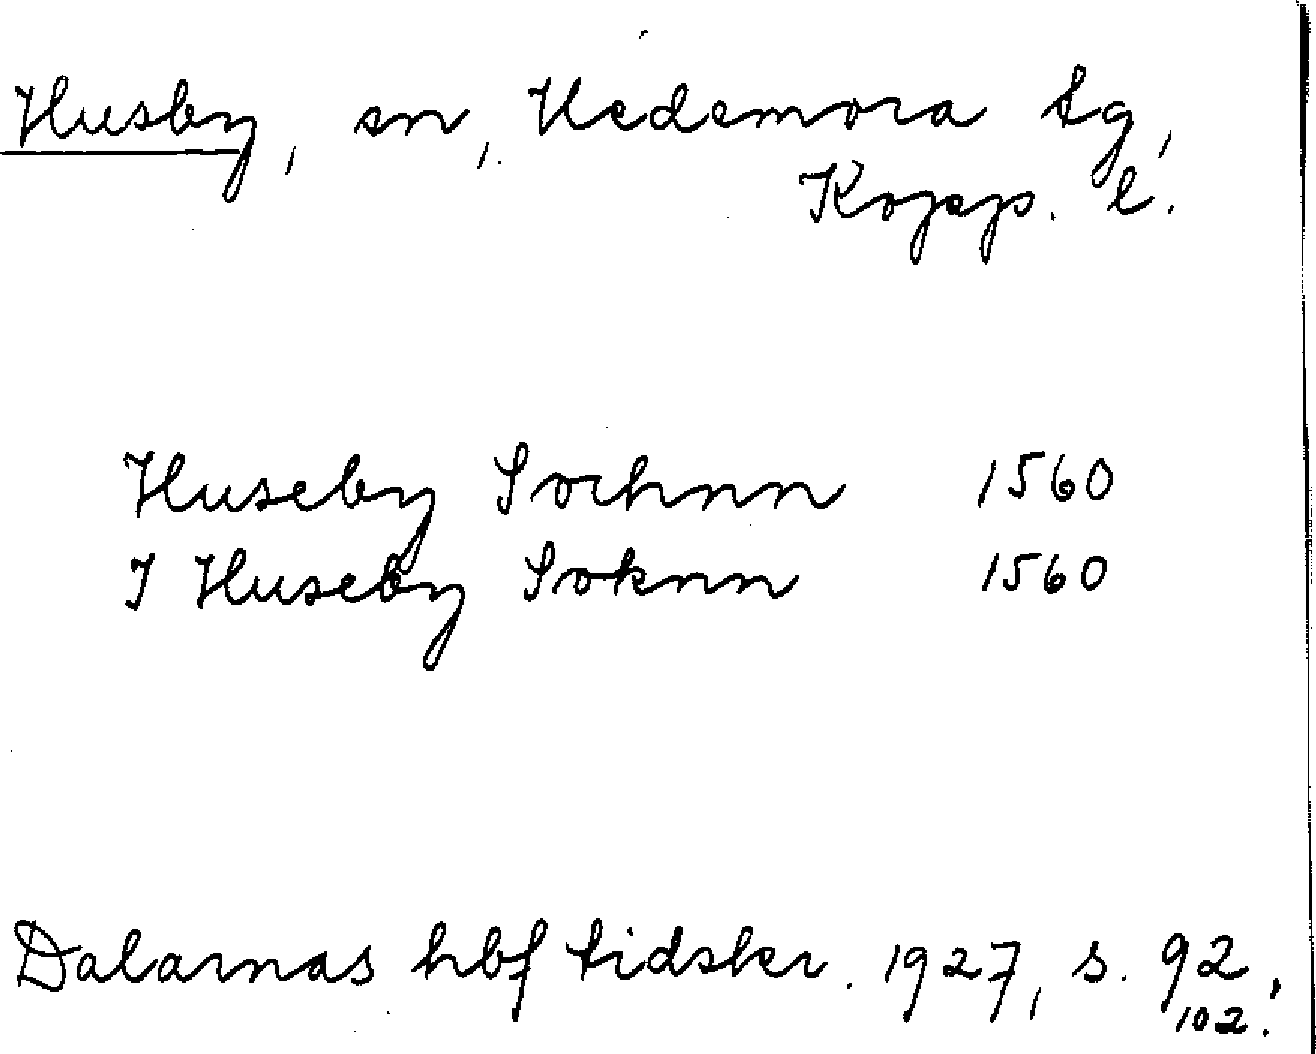 Husby, sn, Hedemora tg,
Kopp. l.
Huseby Sochnn 1560
I Huseby Soknn 1560
Dalarnas hbf tidskr. 1927, s. 92,
102.